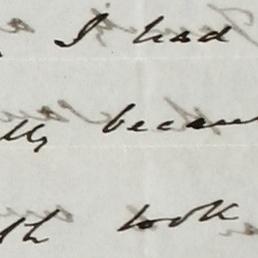 I had
lly becam
th took